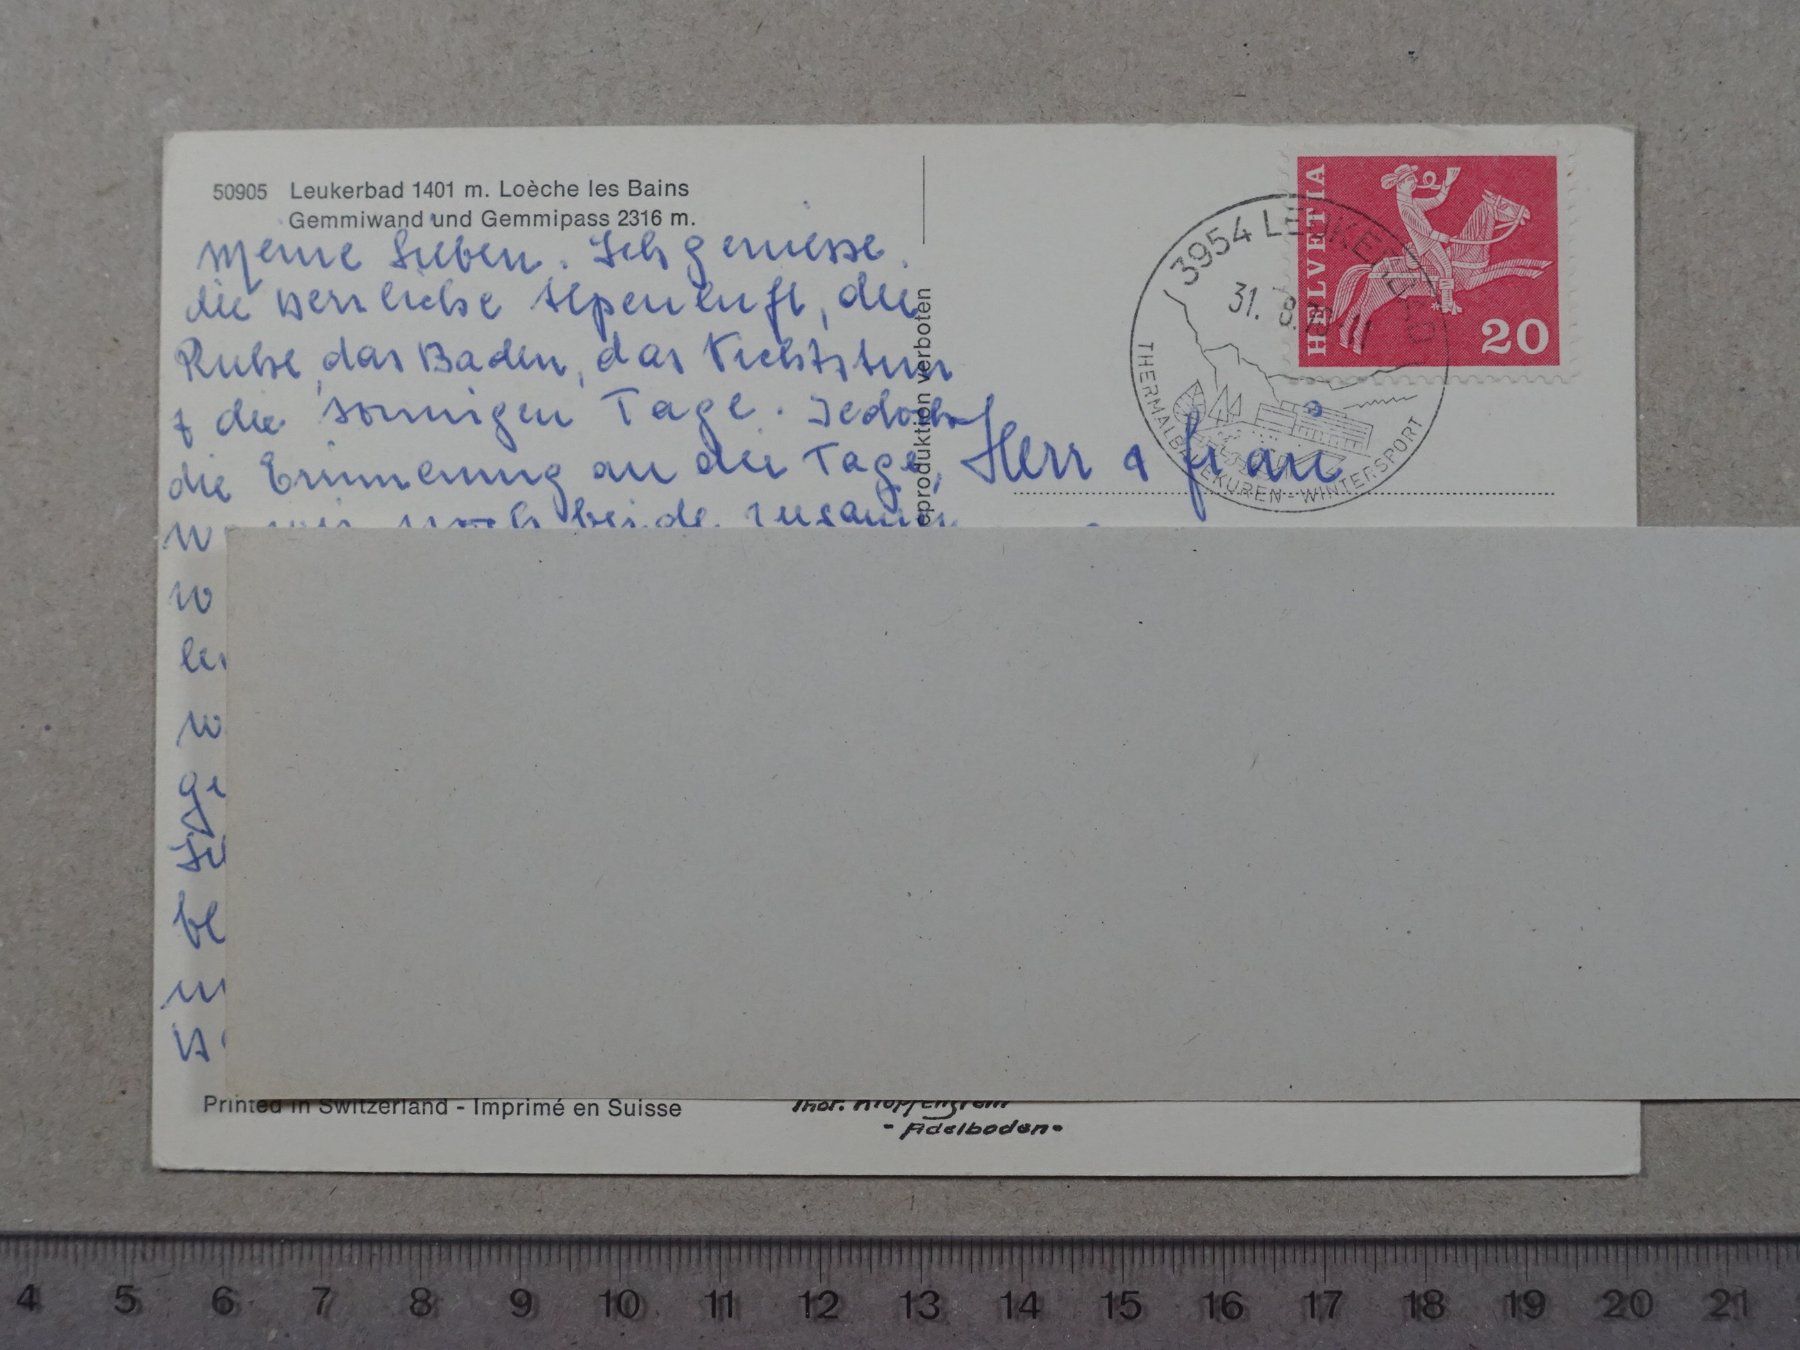 50905 Leukerbad 1401 m. Loèche les Bains
Gemmiwand und Gemmipass 2316 m.
meine Lieben. Ich geniesse
die herrliche Alpenluft, die
Ruhe, das Baden, das Nichtstun
& die sonnigen Tage. Jedoch
die Erinnerung an die Tage,
wir noch beide
HELVETIA
20
3954 LEUKERBAD
31. 8.
THERMALBADEKUREN - WINTERSPORT
eproduktion verboten
Herr & Frau
Printed in Switzerland - Imprimé en Suisse
Thor. Klopfenstein
- Adelboden -
4 5 6 7 8 9 10 11 12 13 14 15 16 17 18 19 20 21